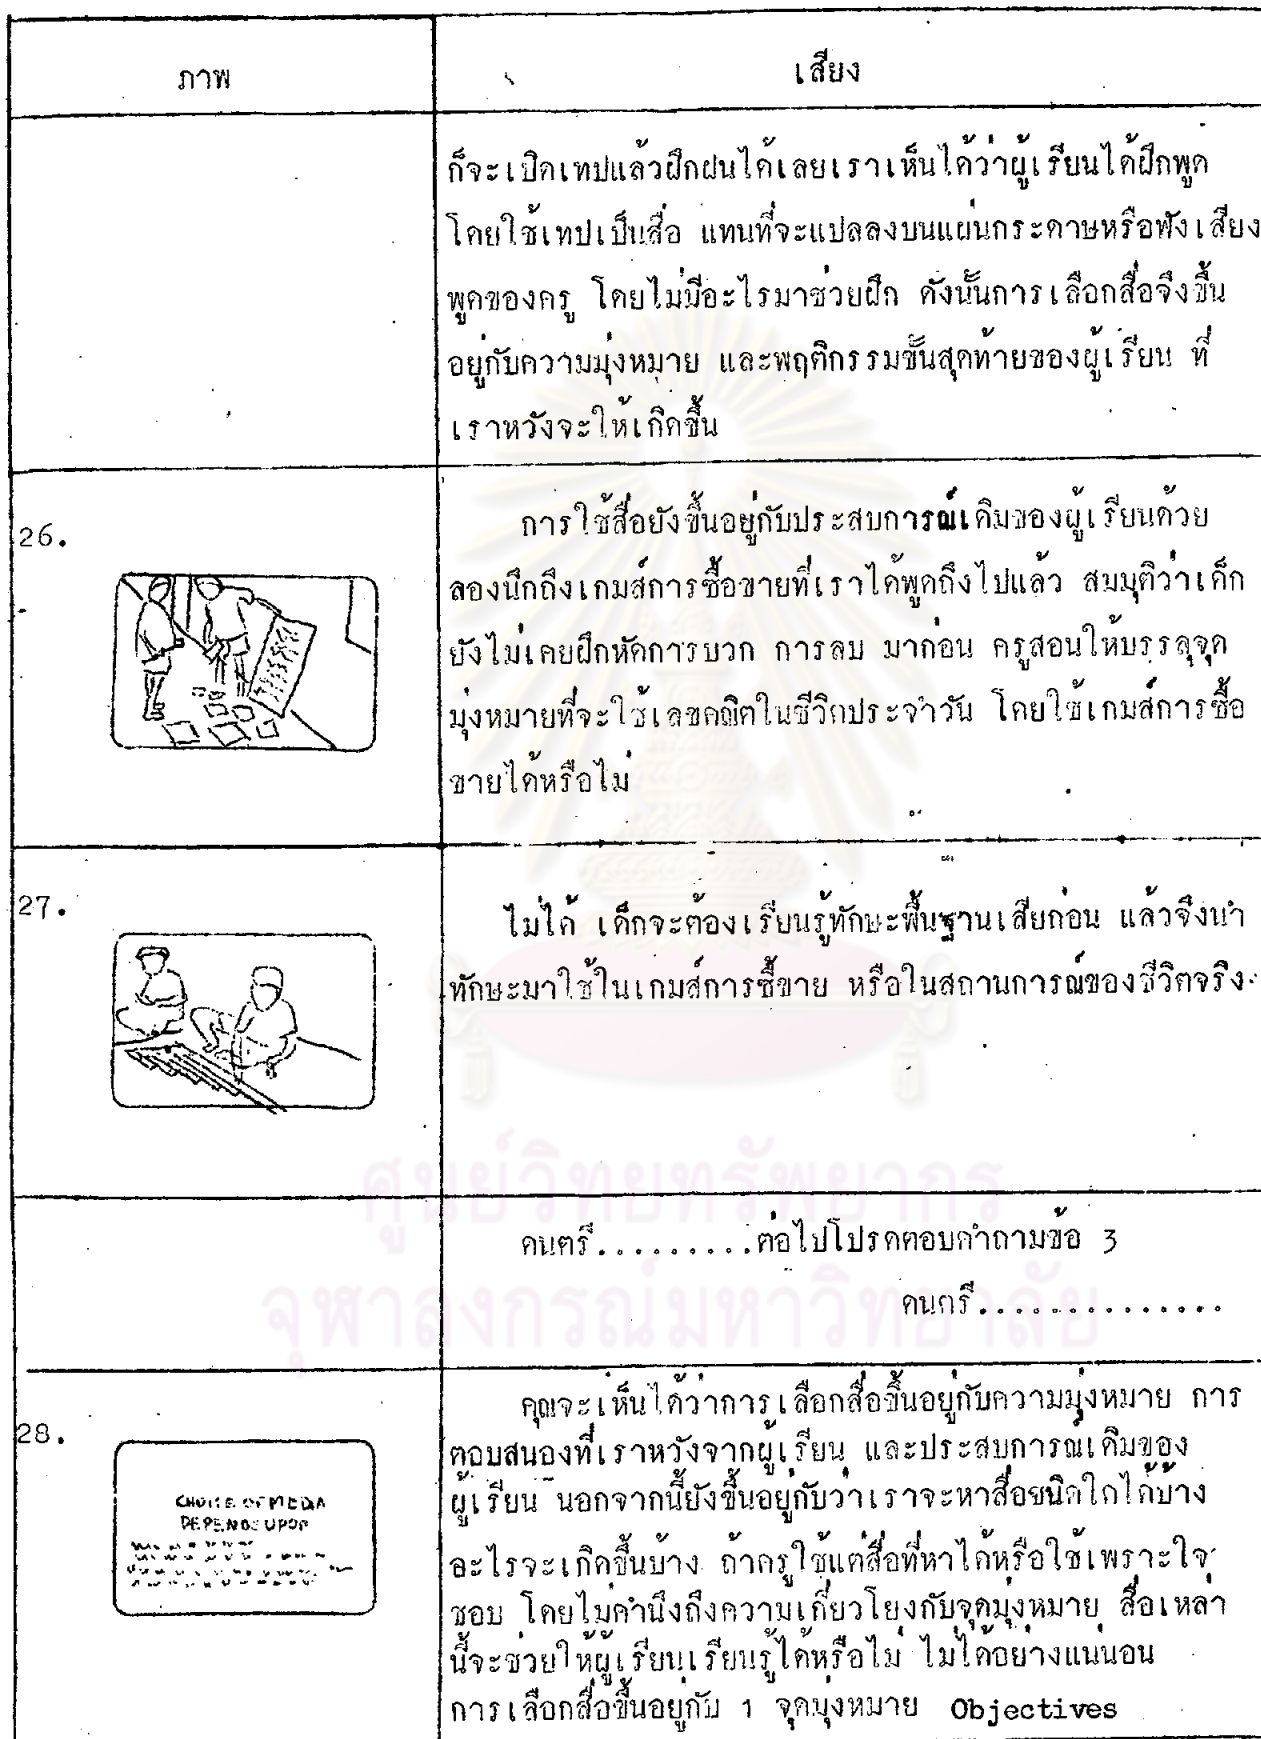 ภาพ
เสียง
ก็จะเปิดเทปแล้วฝึกฝนได้เลยเราเห็นได้ว่าผู้เรียนได้ฝึกพูด
โดยใช้เทปเป็นสื่อ แทนที่จะแปลลงบนแผ่นกระดาษหรือฟังเสียง
พูดของครู โดยไม่มีอะไรมาช่วยฝึก ดังนั้นการเลือกสื่อจึงขึ้น
อยู่กับความมุ่งหมาย และพฤติกรรมขั้นสุดท้ายของผู้เรียน ที่
เราหวังจะให้เกิดขึ้น
26.
การใช้สื่อยังขึ้นอยู่กับประสบการณ์เดิมของผู้เรียนด้วย
ลองนึกถึงเกมส์การซื้อขายที่เราได้พูดถึงไปแล้ว สมมุติว่าเด็ก
ยังไม่เคยฝึกหัดการบวก การลบ มาก่อน ครูสอนให้บรรลุจุด
มุ่งหมายที่จะใช้เลขคณิตในชีวิตประจำวัน โดยใช้เกมส์การซื้อ
ขายได้หรือไม่
27.
ไม่ได้ เด็กจะต้องเรียนรู้ทักษะพื้นฐานเสียก่อน แล้วจึงนำ
ทักษะมาใช้ในเกมส์การซื้ขาย หรือในสถานการณ์ของชีวิตจริง
ดนตรี.........ต่อไปโปรดตอบคำถามข้อ 3
ดนตรี..............
28.
CHOICE OF MEDIA
DEPENDS UPON
คุณจะเห็นได้ว่าการเลือกสื่อขึ้นอยู่กับความมุ่งหมาย การ
ตอบสนองที่เราหวังจากผู้เรียน และประสบการณ์เดิมของ
ผู้เรียน นอกจากนี้ยังขึ้นอยู่กับว่าเราจะหาสื่อชนิดใดได้บ้าง
อะไรจะเกิดขึ้นบ้าง ถ้าครูใช้แต่สื่อที่หาได้หรือใช้เพราะใจ
ชอบ โดยไม่คำนึงถึงความเกี่ยวโยงกับจุดมุ่งหมาย สื่อเหล่า
นี้จะช่วยให้ผู้เรียนเรียนรู้ได้หรือไม่ ไม่ได้อย่างแน่นอน
การเลือกสื่อขึ้นอยู่กับ 1 จุดมุ่งหมาย Objectives
ศูนย์วิทยทรัพยากร
จุฬาลงกรณ์มหาวิทยาลัย